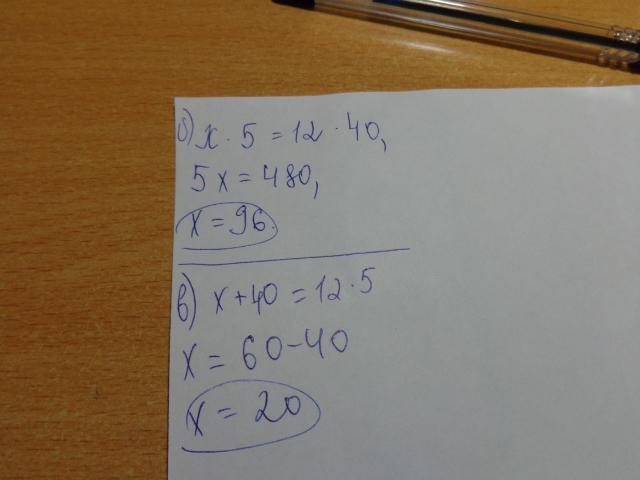 б) x · 5 = 12 · 40,
5x = 480,
x = 96.
в) x + 40 = 12 · 5
x = 60 - 40
x = 20